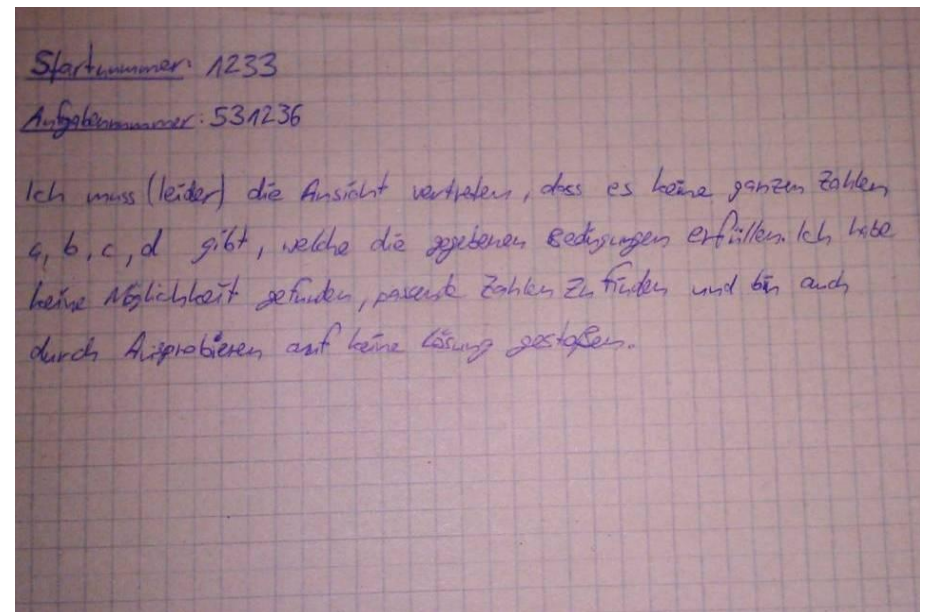 Startnummer: 1233
Aufgabennummer: 531236
Ich muss (leider) die Ansicht vertreten, dass es keine ganzen Zahlen
a, b, c, d gibt, welche die gegebenen Bedingungen erfüllen. Ich habe
keine Möglichkeit gefunden, passende Zahlen zu finden und bin auch
durch Ausprobieren auf keine Lösung gestoßen.